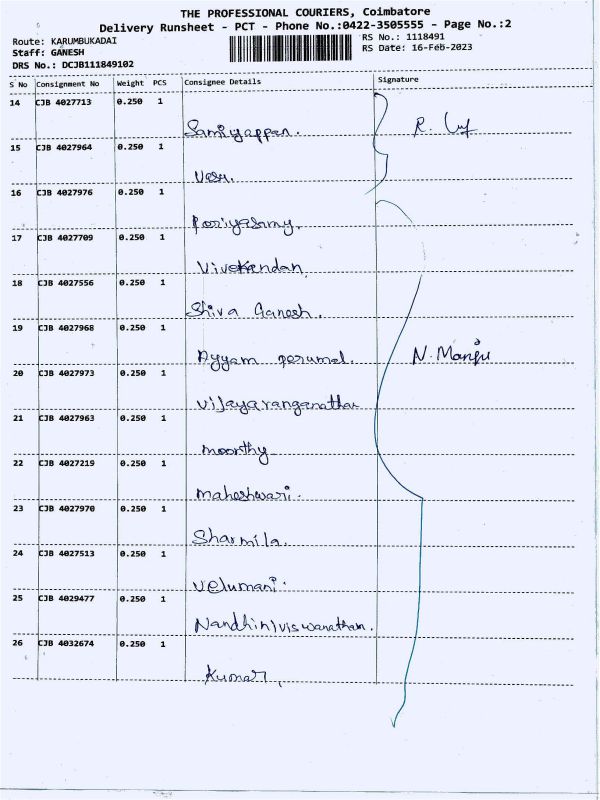 THE PROFESSIONAL COURIERS, Coimbatore
Delivery Runsheet - PCT - Phone No.:0422-3505555 - Page No.:2
Route: KARUMBUKADAI
Staff: GANESH
DRS No.: DCJB111849102
RS No.: 1118491
RS Date: 16-Feb-2023
S No Consignment No Weight PCS Consignee Details Signature
14 CJB 4027713 0.250 1
Samiyappan.
15 CJB 4027964 0.250 1
Vasu.
16 CJB 4027976 0.250 1
Poriyasamy.
17 CJB 4027709 0.250 1
Vivekandan
18 CJB 4027556 0.250 1
Shiva Ganesh.
19 CJB 4027968 0.250 1
Ayyam perumal. N. Manju
20 CJB 4027973 0.250 1
Vijayaranganathan
21 CJB 4027963 0.250 1
moorthy
22 CJB 4027219 0.250 1
maheshwari.
23 CJB 4027970 0.250 1
Sharmila.
24 CJB 4027513 0.250 1
Velumani.
25 CJB 4029477 0.250 1
Nandhiniviswanathan.
26 CJB 4032674 0.250 1
Kumar.